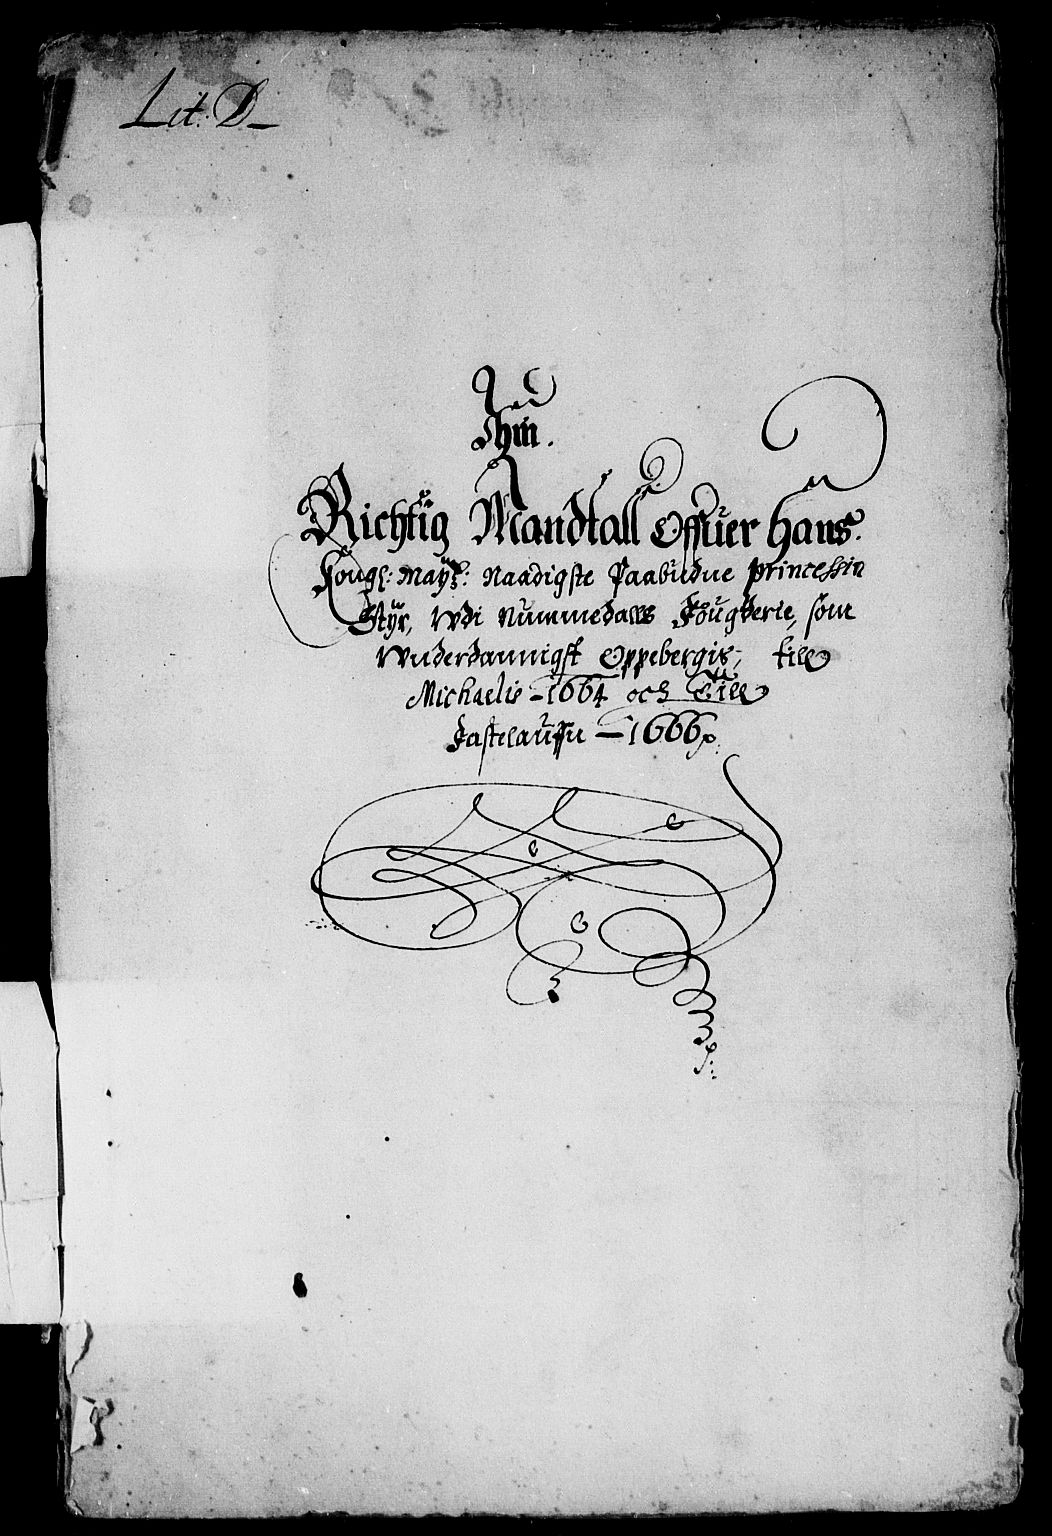 Lit: D
Een
Richtig Mandtall Offuer Hans
Kongl: Mayts: Naadigste Paabudne princessin
Styr, udi Nummedals Fougderie, som
underdannigst Oppebergis, till
Michaelis 1664 och till
Fastelauffn 1666